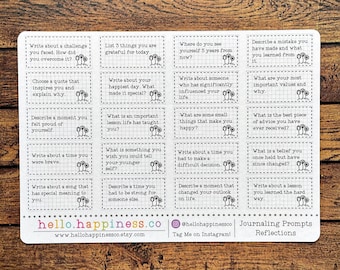 Write about a challenge
you faced. How did you
overcome it?
List 3 things you are
grateful for today
Where do you see
yourself 5 years from
now?
Describe a mistake you
have made and what
you learned from
it
Choose a quote that
inspires you and
explain why.
Write about your
happiest day. What
made it special?
Write about someone
who has significantly
influenced your
life
What are your most
important values and
why.
Describe a moment you
felt proud of
yourself
What is an important
lesson life has taught
you?
What are some small
things that make you
happy?
What is the best piece
of advice you have
ever received?
Write about a time you
were brave.
What is something you
wish you could tell
your younger
self?
Write about a time you
had to make a
difficult decision.
What is a belief you
once held but have
since changed?
Write about a song that
has special meaning to
you.
Describe a time you
had to be strong for
someone else.
Describe a moment that
changed your outlook
on life
Write about a lesson
you learned the hard
way.
hello.happiness.co
www.hellohappinessco.etsy.com
@hellohappinessco
Tag Me on Instagram!
Journaling Prompts
Reflections